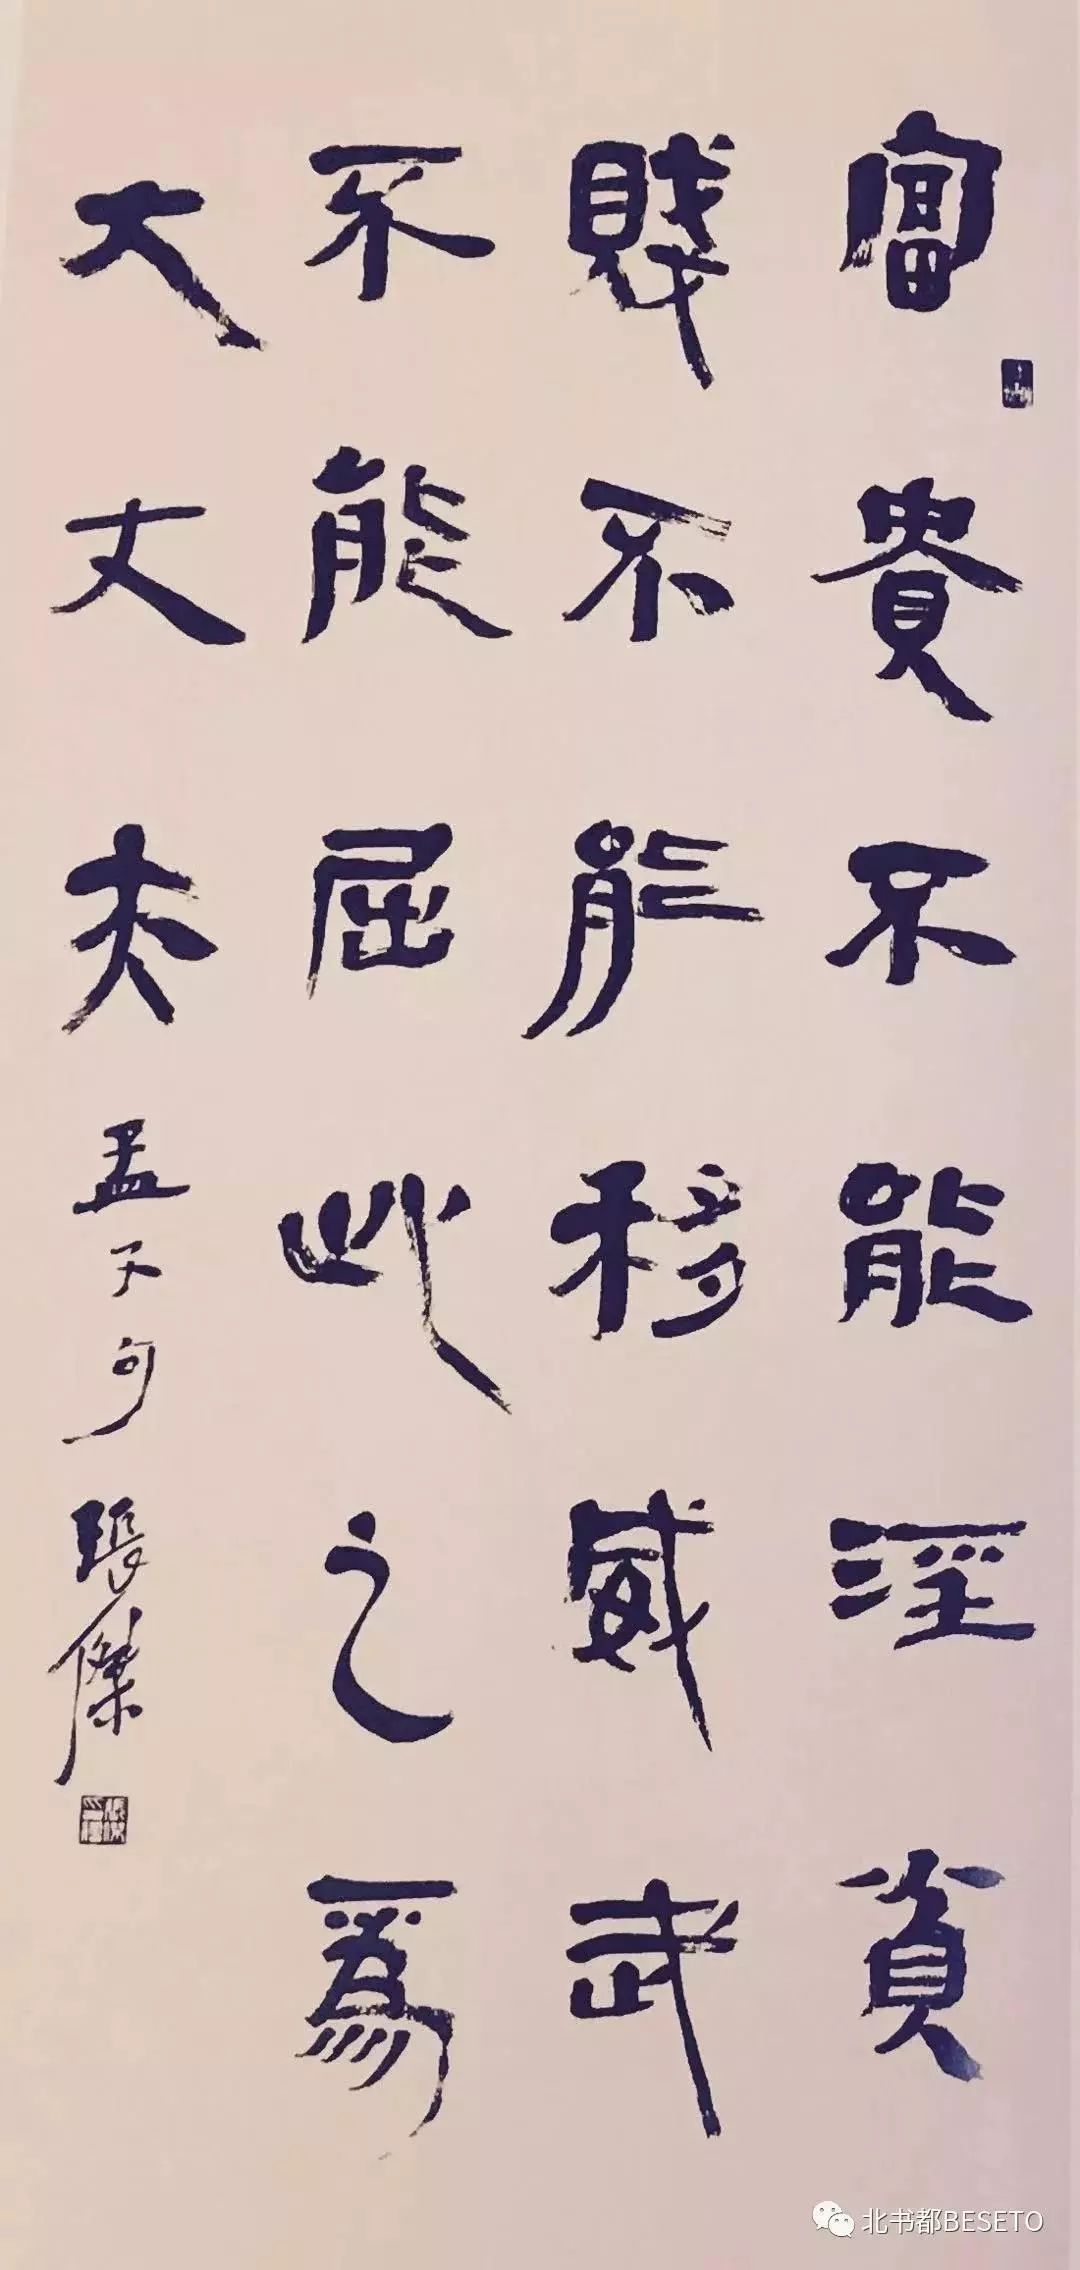 富貴不能淫貧
賤不能移威武
不能屈此之為
大丈夫
孟子句
張傑
北书都BESETO